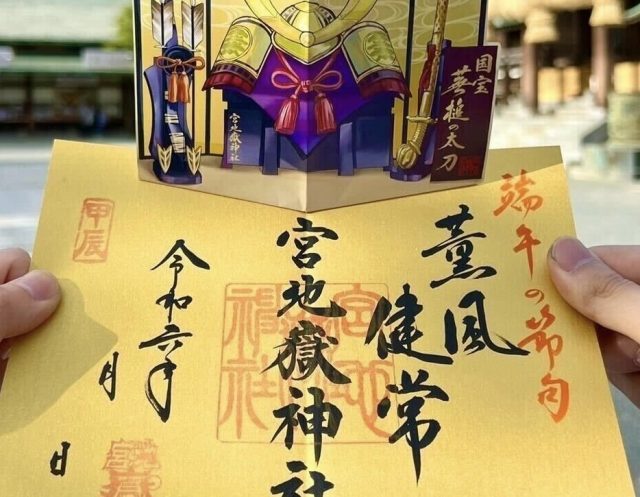 国宝
槌の太刀
宮地嶽神社
端午の節句
薫風
健常
宮地嶽神社
令和六年
月
日
甲辰